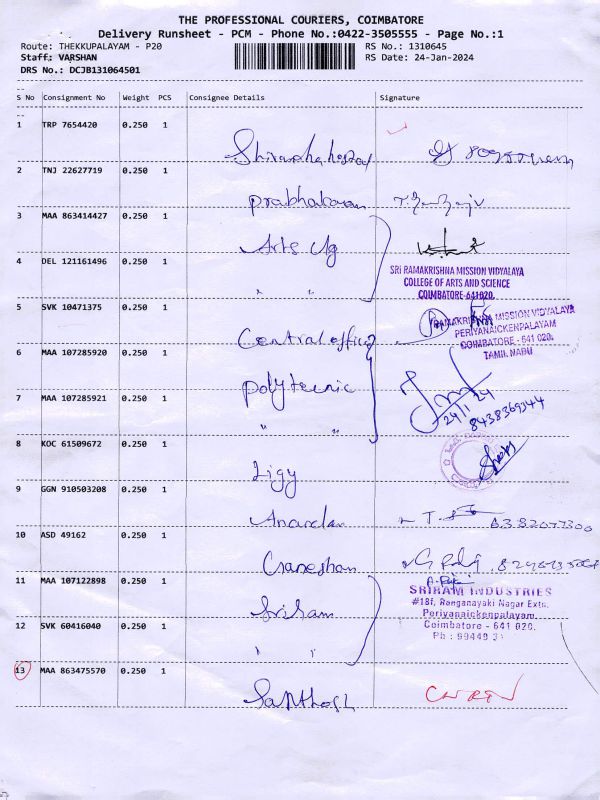 THE PROFESSIONAL COURIERS, COIMBATORE
Delivery Runsheet - PCM - Phone No.:0422-3505555 - Page No.:1
Route: THEKKUPALAYAM - P20 RS No.: 1310645
Staff: VARSHAN RS Date: 24-Jan-2024
DRS No.: DCJB131064501
S No Consignment No Weight PCS Consignee Details Signature
1 TRP 7654420 0.250 1
2 TNJ 22627719 0.250 1
Prabhakaran
3 MAA 863414427 0.250 1
Arts Clg
4 DEL 121161496 0.250 1
SRI RAMAKRISHNA MISSION VIDYALAYA
COLLEGE OF ARTS AND SCIENCE
COIMBATORE-641020.
" "
5 SVK 10471375 0.250 1
RAMAKRISHNA MISSION VIDYALAYA
PERIYANAICKENPALAYAM
COIMBATORE - 641 020.
TAMIL NADU
Central office
6 MAA 107285920 0.250 1
Polytecnic
7 MAA 107285921 0.250 1
24/1/24
8438369344
" "
8 KOC 61509672 0.250 1
Ligy
9 GGN 910503208 0.250 1
Anandan
10 ASD 49162 0.250 1
Ganeshan
11 MAA 107122898 0.250 1
SRIRAM INDUSTRIES
#18f, Renganayaki Nagar Extn.
Periyanaickenpalayam.
Coimbatore - 641 020.
Sriram
12 SVK 60416040 0.250 1
Ph : 99440
" "
13 MAA 863475570 0.250 1
Santhosh